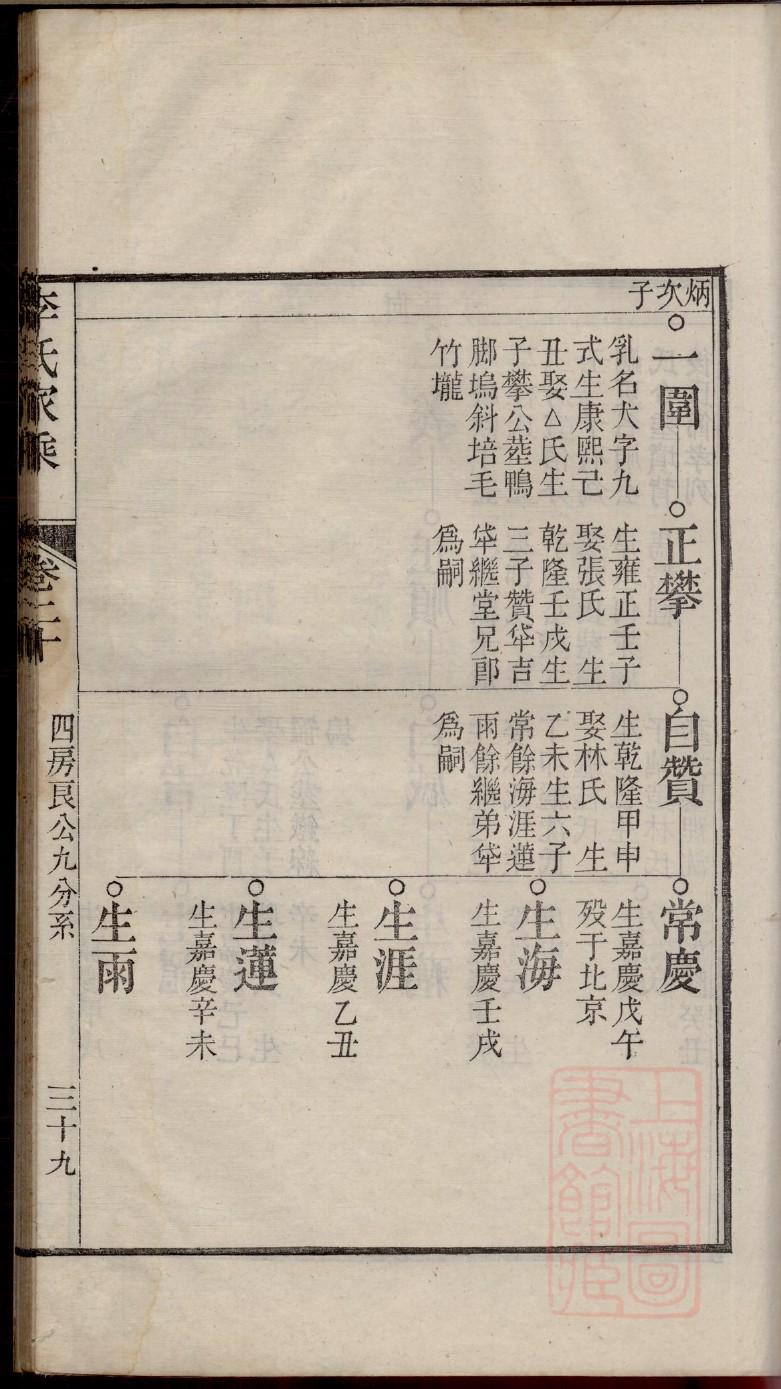 炳次子
一圍
乳名犬字九
式生康熙己
丑娶△氏生
子攀公塟鴨
脚塢斜培毛
竹壠
正攀
生雍正壬子
娶張氏　生
乾隆壬戌生
三子贊𠦬吉
𠦬繼堂兄郎
爲嗣
自贊
生乾隆甲申
娶林氏　生
乙未生六子
常餘海涯蓮
雨餘繼弟𠦬
爲嗣
常慶
生嘉慶戊午
歿于北京
生海
生嘉慶壬戌
生涯
生嘉慶乙丑
生蓮
生嘉慶辛未
生雨
李氏家乘
卷二十
四房良公九分系
三十九
上海圖
書館藏